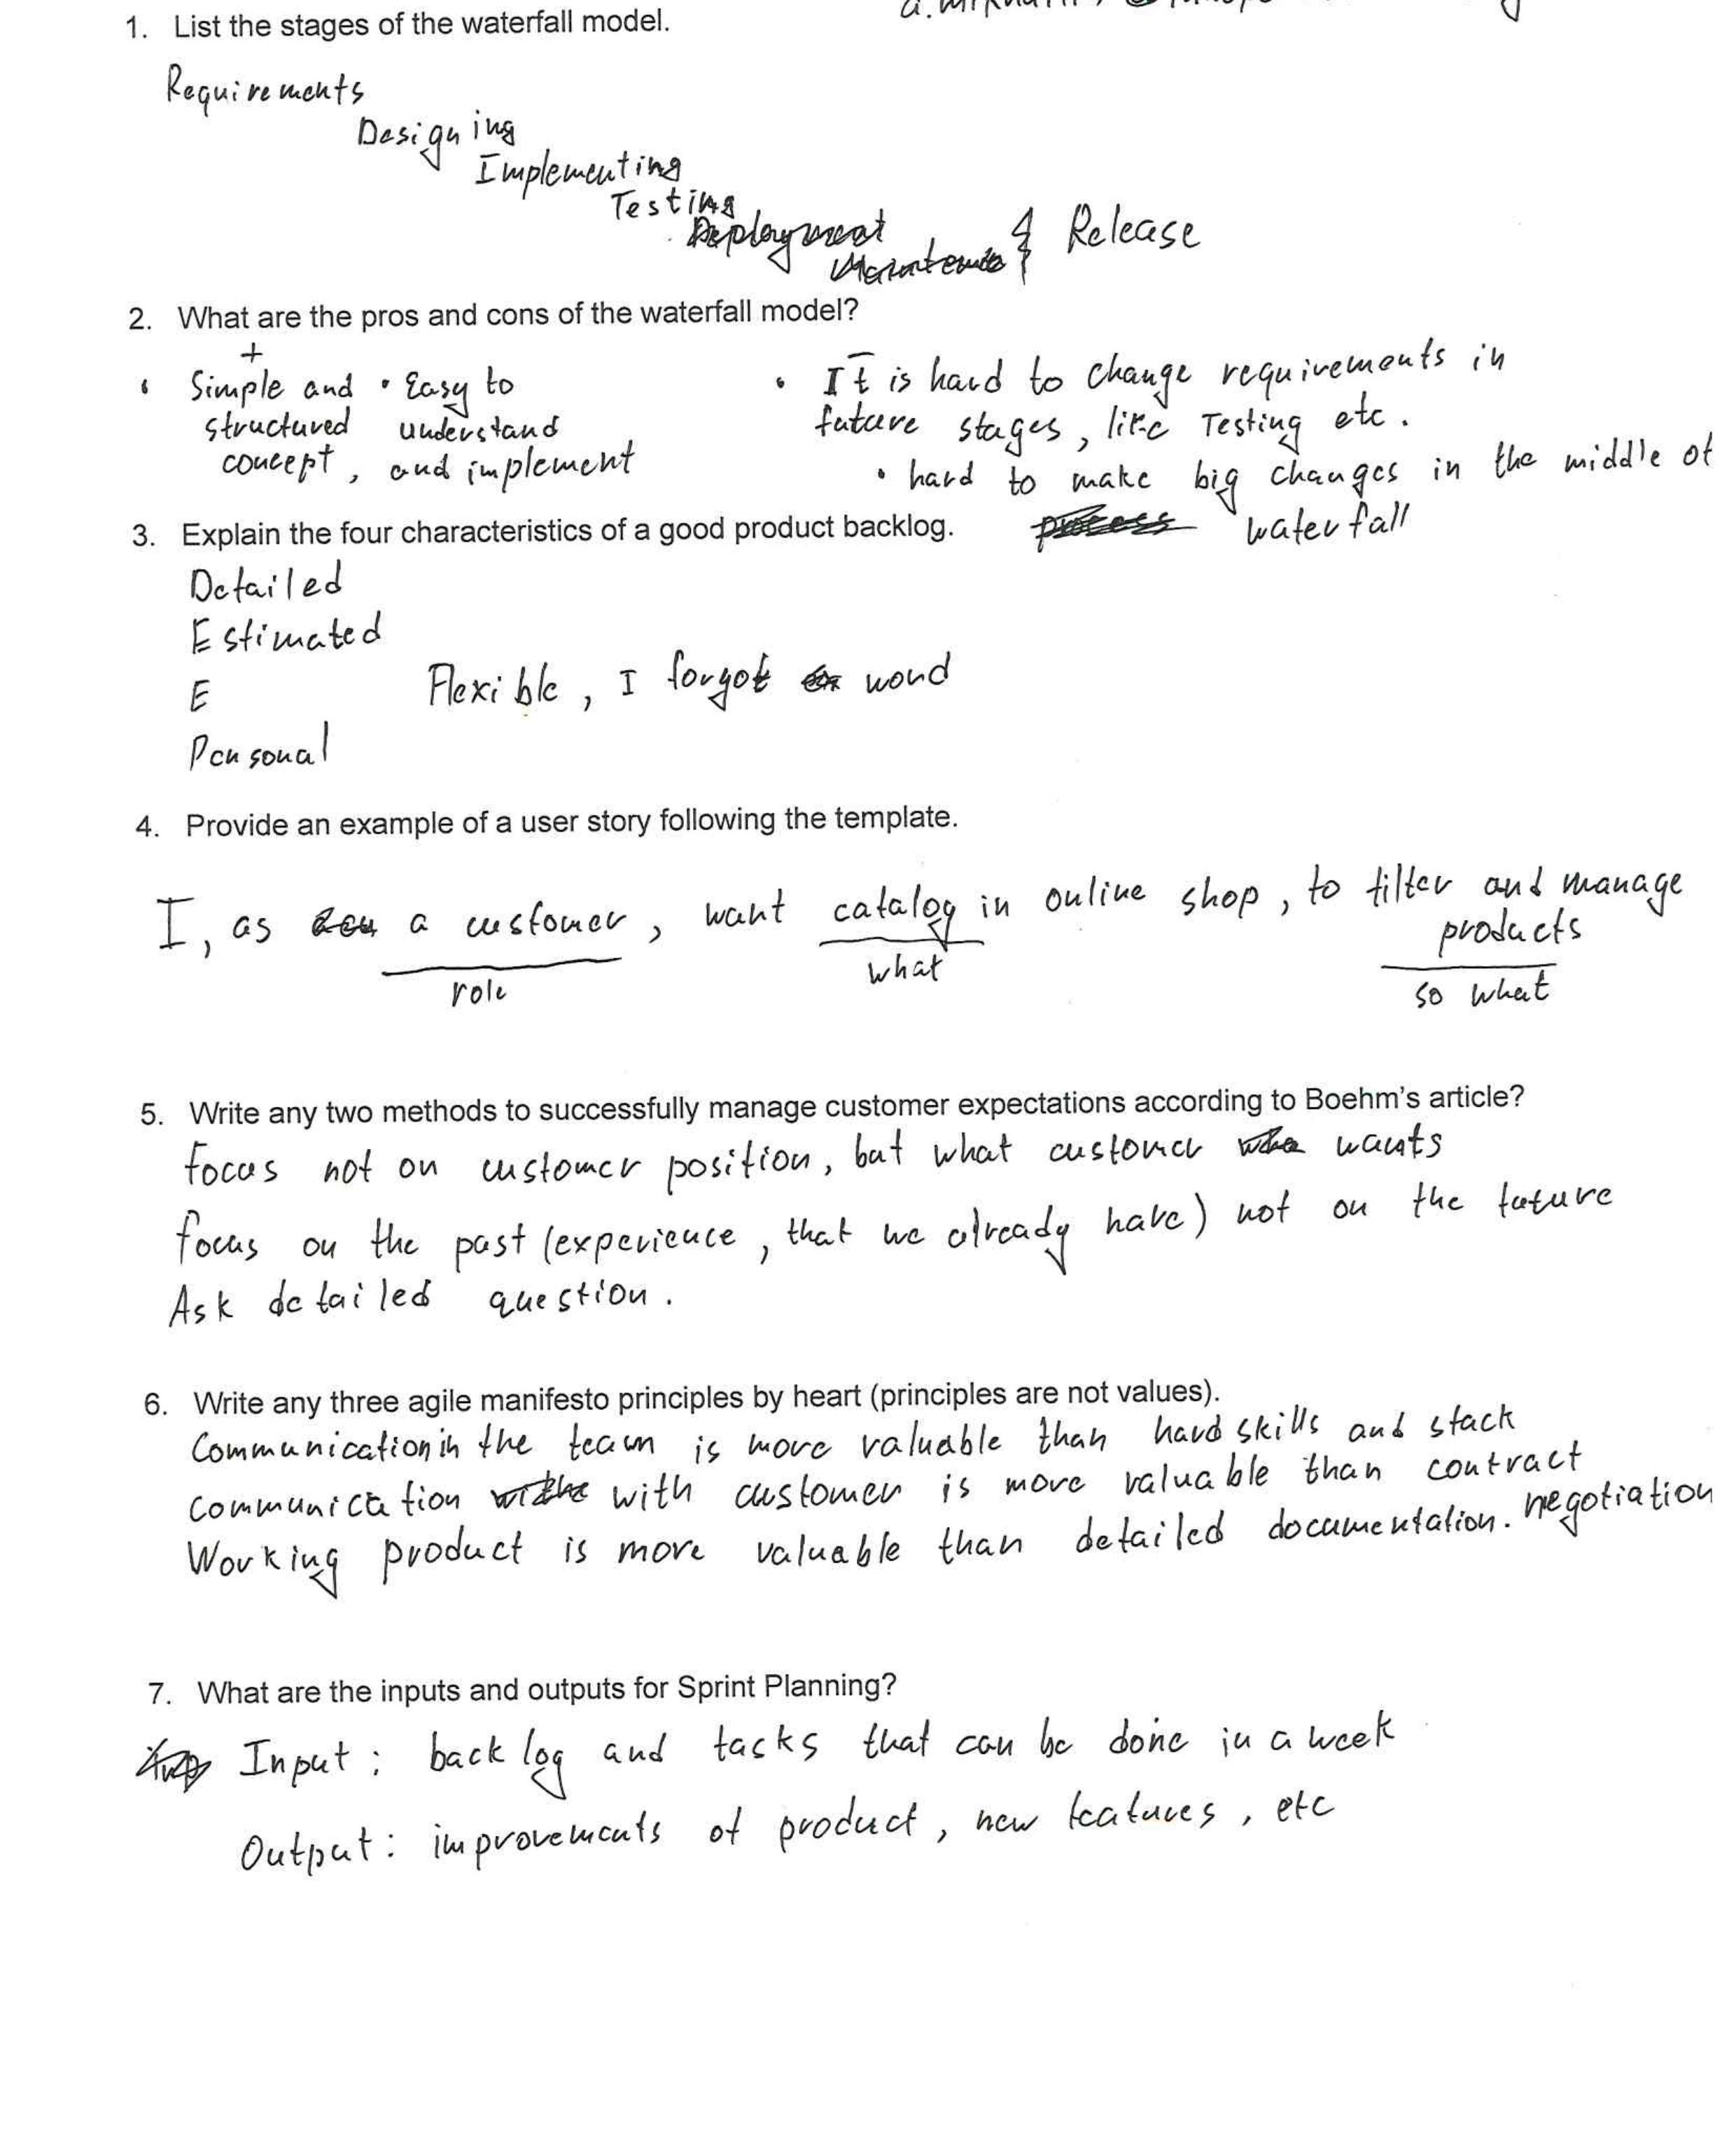 1. List the stages of the waterfall model.
Requirements
Designing
Implementing
Testing
Deployment
Maintenance } Release
2. What are the pros and cons of the waterfall model?
+
• Simple and structured concept,
• Easy to understand and implement
–
• It is hard to change requirements in
future stages, like Testing etc.
• hard to make big changes in the middle of
process waterfall
3. Explain the four characteristics of a good product backlog.
Detailed
Estimated
E Flexible, I forgot word
Personal
4. Provide an example of a user story following the template.
I, as a customer, want catalog in online shop, to filter and manage
products
role what so what
5. Write any two methods to successfully manage customer expectations according to Boehm's article?
focus not on customer position, but what customer wants
focus on the past (experience, that we already have) not on the future
Ask detailed question.
6. Write any three agile manifesto principles by heart (principles are not values).
Communication in the team is more valuable than hard skills and stack
Communication with customer is more valuable than contract
negotiation
Working product is more valuable than detailed documentation.
7. What are the inputs and outputs for Sprint Planning?
Input: backlog and tasks that can be done in a week
Output: improvements of product, new features, etc